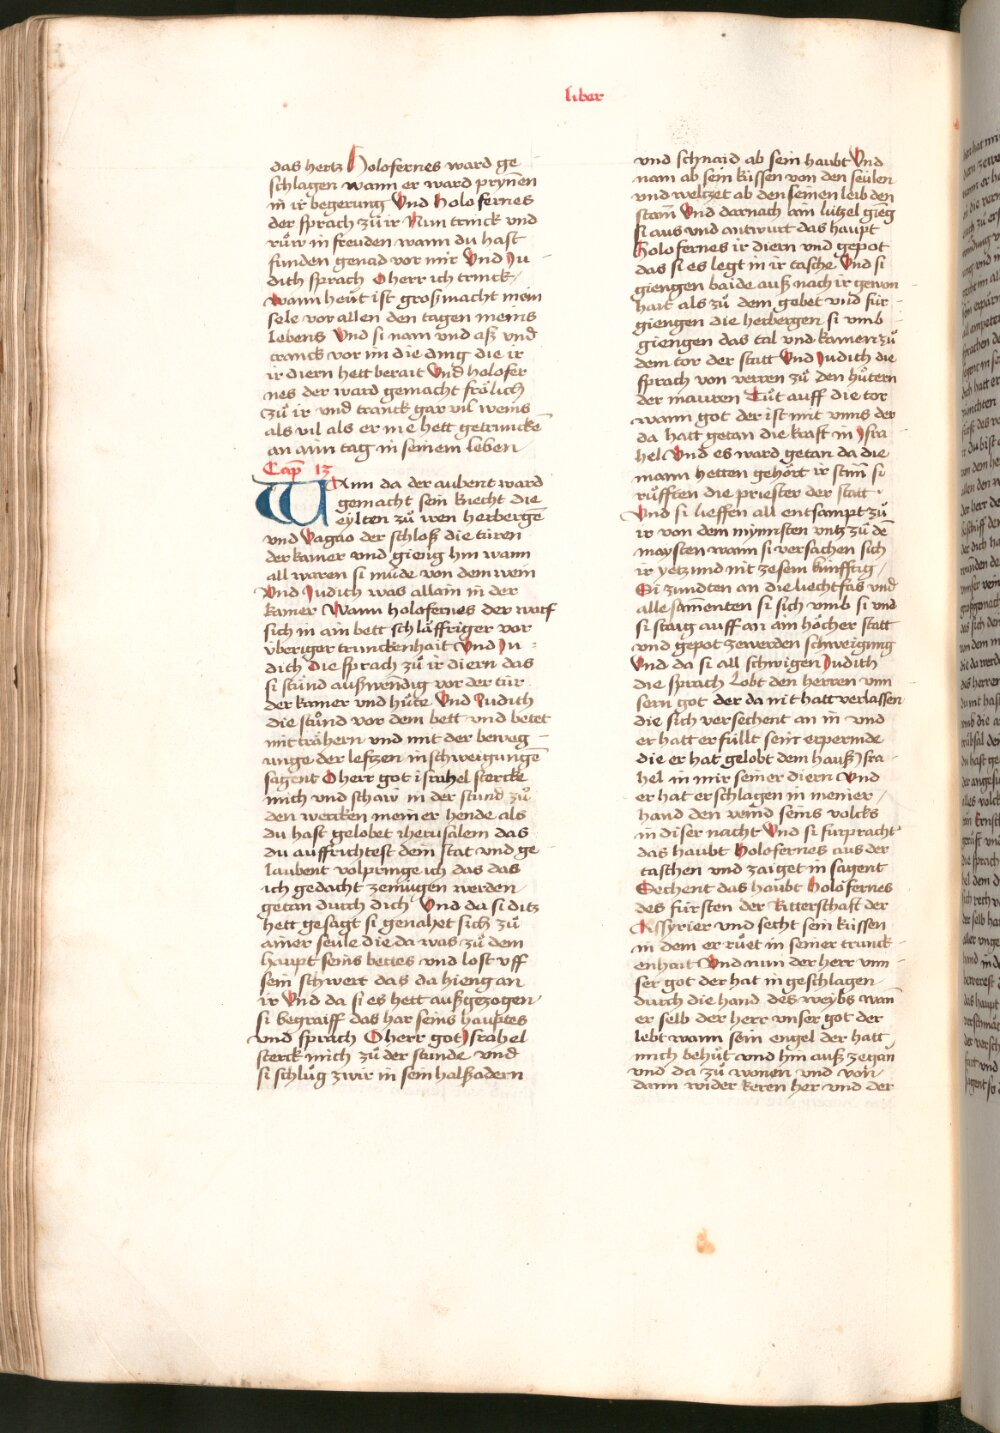 liber
das hertz Holofernes ward ge
schlagen wann er ward prynēn
in ir begerung Vnd holofernes
der sprach zů ir Nun trinck vnd
růw in freuden wann du hast
funden genad vor mir Vnd Ju
dith sprach O herr ich trinck
Wann heůt ist groß macht mein
sele vor allen den tagen meins
lebens Vnd si nam vnd aß vnd
tranck vor im die ding die ir
ir diern hett berait Vnd holofer
nes der ward gemacht frölich
zů ir vnd tranck gar vil weins
als vil als er nie hett getruncke
an aim tag in seinem leben
Cap̄ 13
WAnn da der aubent ward
gemacht sein knecht die
eylten zů iren herbergē
vnd Vagao der schloß die türen
der kamer vnd gieng hin wann
all waren si müde von dem wein
Vnd Judith was allain in der
kamer Wann holofernes der warf
sich in ain bett schläffriger vor
vberiger trunckenhait Vnd Ju
dith Die sprach zů ir diern das
si stůnd außwendig vor der tür
der kamer vnd hůte Vnd Judith
die stůnd vor dem bett vnd betet
mit trähern vnd mit der beweg
unge der lefzen in schweigungē
sagent O herr got israhel stercke
mich vnd schaw in der stund zů
den wercken meiner hende als
du hast gelobet iherusalem das
du auffrichtest dein stat vnd ge
laubent volpringe ich das das
ich gedacht zemügen werden
getan durch dich Vnd da si ditz
hett gesagt si genahet sich zů
ainer seule die da was zů dem
haupt seins bettes vnd lost vff
sein schwert das da hieng an
ir Vnd da si es hett außgezogen
si begraiff das har seins hauptes
vnd sprach O herr got Jsrahel
sterck mich zů der stunde vnd
si schlůg zwir in sein halßadern
vnd schnaid ab sein haubt Vnd
nam ab sein küssen von den seülen
vnd weltzet ab den seinen leib den
stam̄ Vnd darnach ain lützel gieng
si aus vnd antwurt das haupt
Holofernes ir diern vnd gepot
das si es legt in ir tasche Vnd si
giengen baide auß nach ir gewon
hait als zů dem gebet vnd für
giengen die herbergen si vmb
giengen das tal vnd kamen zů
dem tor der statt Vnd Judith die
sprach von verren zů den hůtern
der mauren Tůt auff die tor
wann got der ist mit vnns der
da hatt getan die krafft in Jsra
hel Vnd es ward getan da die
mann hetten gehört ir stim̄ si
růfften die priester der statt
Vnd si lieffen all entsampt zů
ir von dem mynnsten vntz zů dē
maysten wann si versachen sich
ir yetzund nit zesein künfftig
Si zundten an die liechtfas vnd
alle samenten si sich vmb si vnd
si staig auff an ain höcher statt
vnd gepot zewerden schweigung
Vnd da si all schwigen Judith
die sprach Lobt den herren vnn
sern got der da nit hatt verlassen
die sich versechent an in vnd
er hatt erfüllt sein erpermde
die er hat gelobt dem hauß Jsra
hel in mir seiner diern Vnd
er hat erschlagen in meiner
hand den veind seins volcks
in diser nacht Vnd si fürpracht
das haubt Holofernes aus der
taschen vnd zaiget in sagent
Sechent das haubt Holofernes
des fürsten der Ritterschaft der
Assyrier vnd secht sein küssen
in dem er růet in seiner trunck
enhait Vnd nun der herr vnn
ser got der hat in geschlagen
durch die hand des weybs wan̄
er selb der herr vnser got der
lebt wann sein engel der hatt
mich behůt vnd hin auß zegan
vnd da zů wonen vnd von
dann wider keren her vnd der